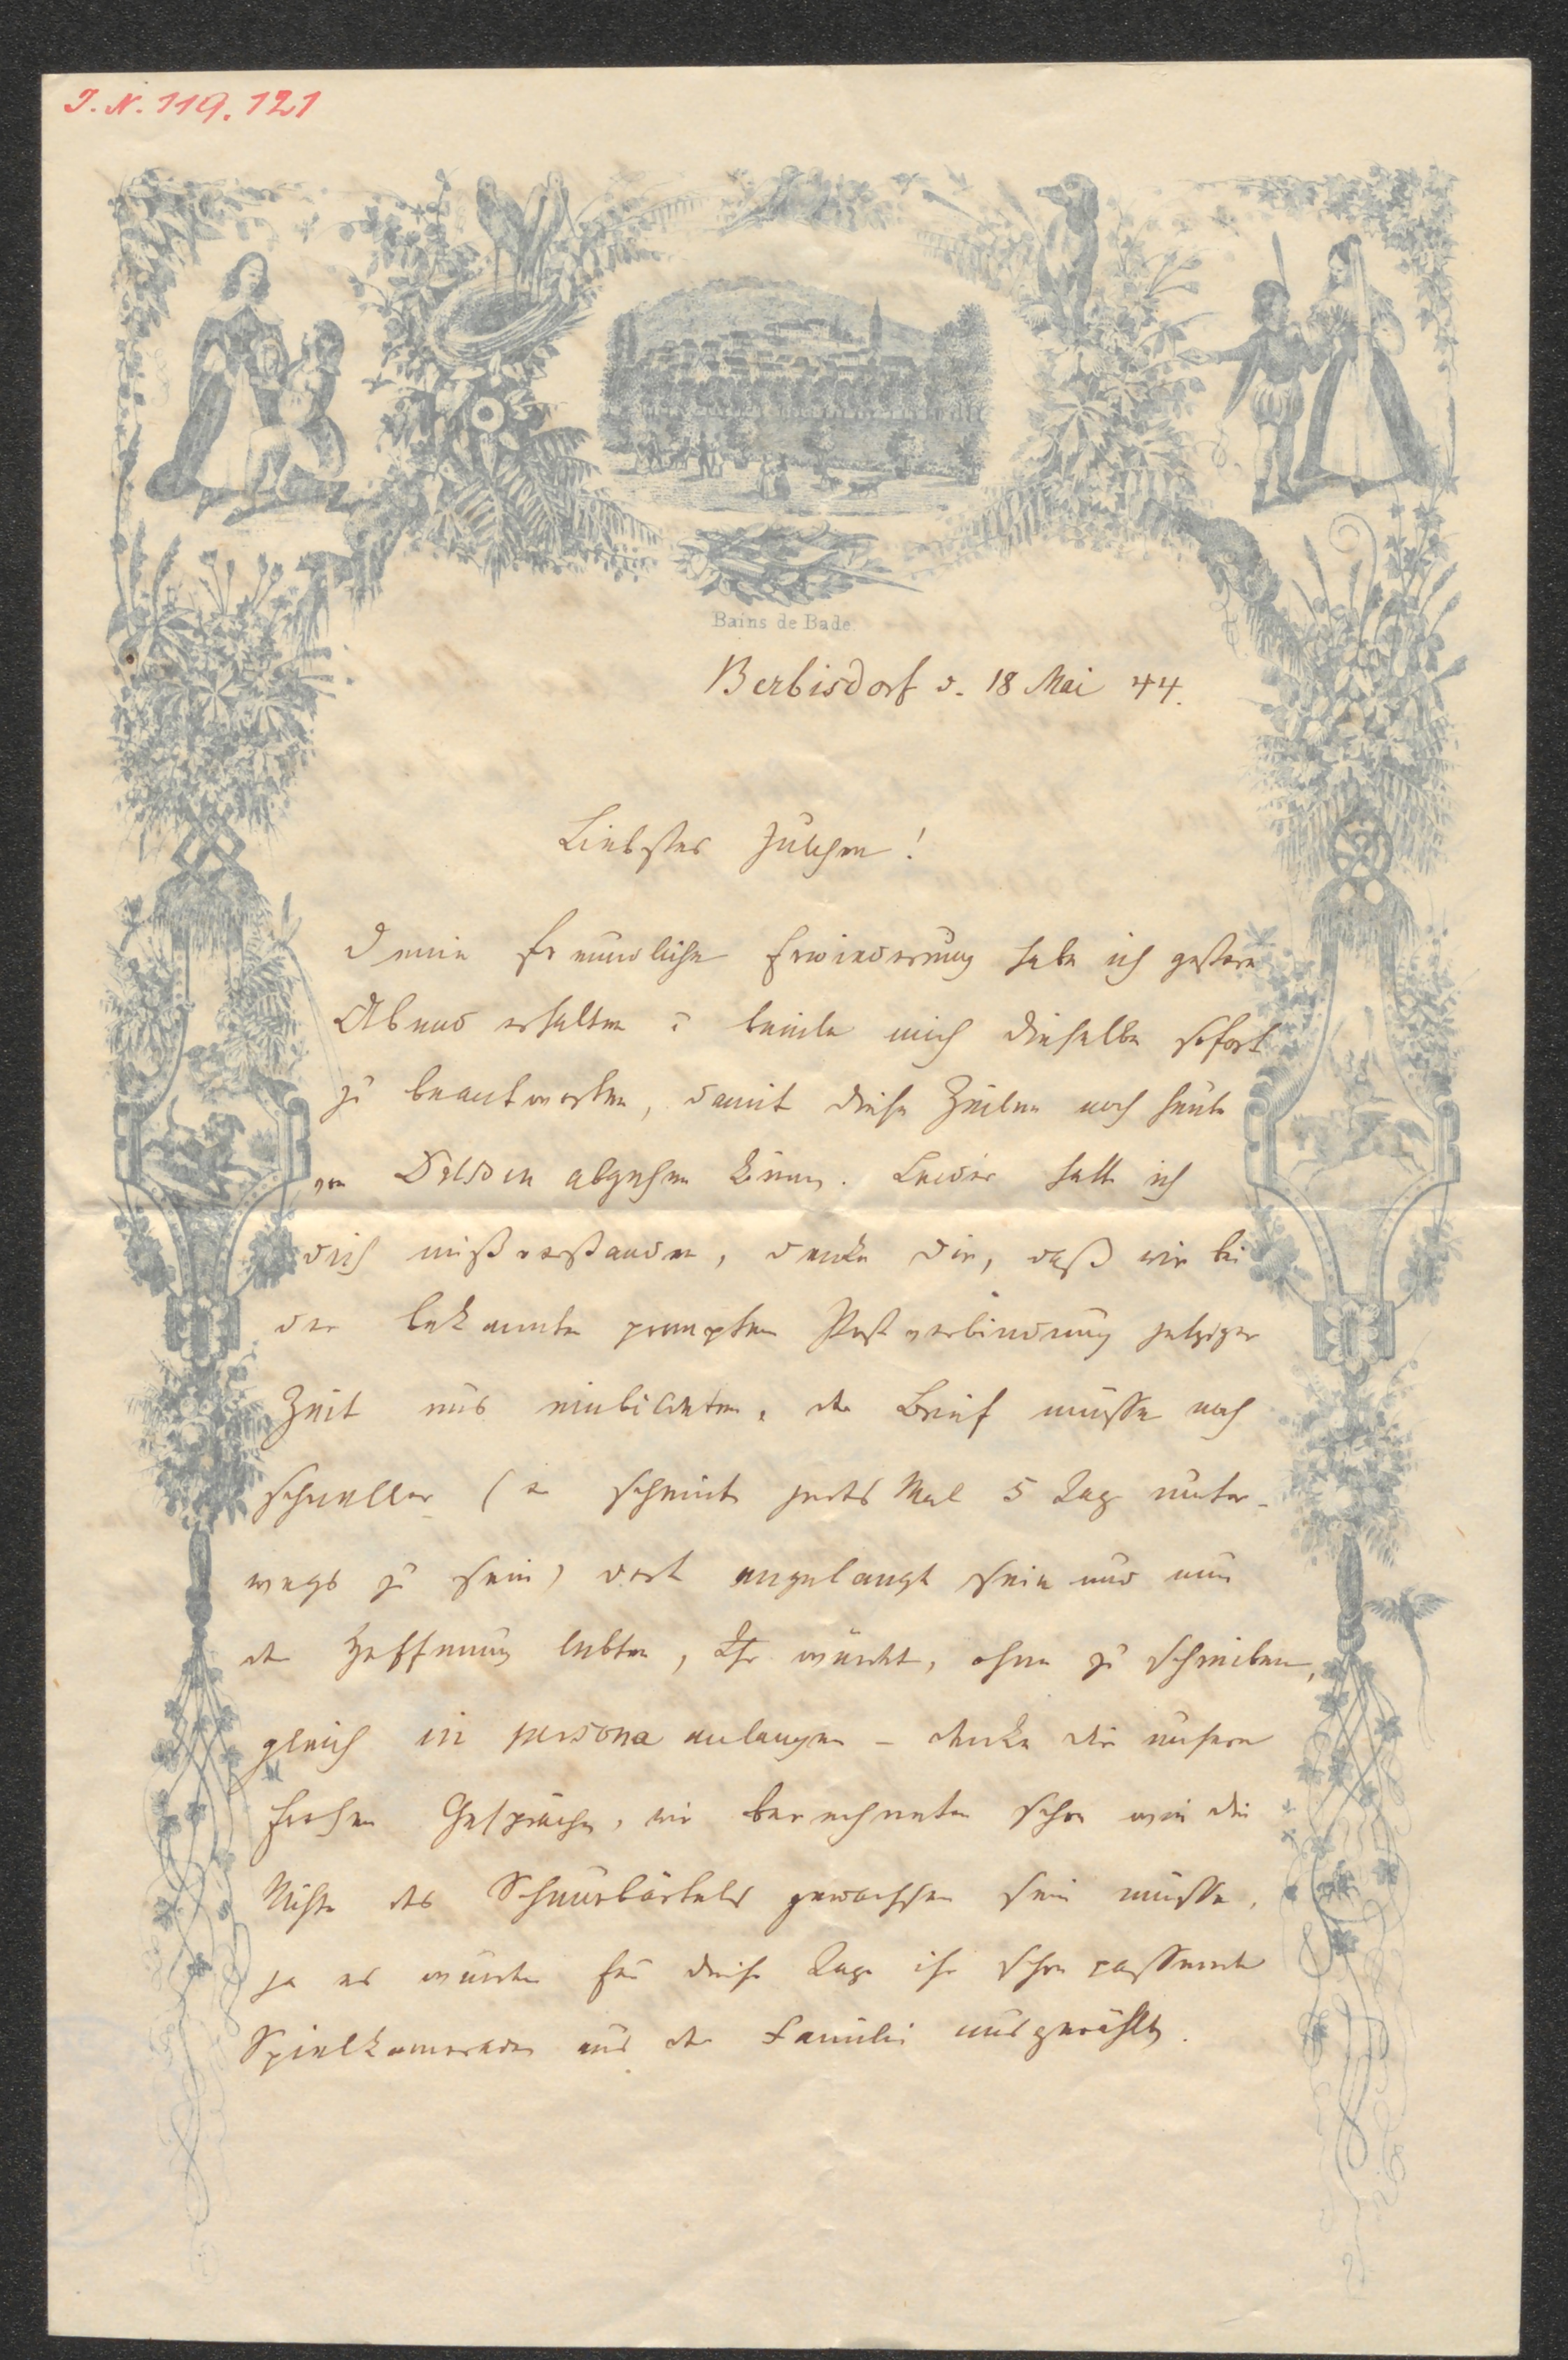 I. N. 119.121
Bains de Bade.
Berbisdorf d. 18 Mai 44.
Liebstes Julchen!
Deine freundliche Erwiederung habe ich gestern
Abend erhalten u beeile mich dieselbe sofort
zu beantworten, damit diese Zeilen noch heute
von Dresden abgehen können. Leider hatte ich
dich mißverstanden, denke dir, daß wir bei
der bekannten prompten Postverbindung jetziger
Zeit uns einbildeten, der Brief müsse noch
schneller (er scheint jedes Mal 5 Tage unter-
wegs zu sein) dort angelangt sein und nun
der Hoffnung lebten, Ihr würdet, ohne zu schreiben,
gleich in persona anlangen – denke dir unsere
frohen Gespräche, wir berechneten schon wie die
des gewachsen sein müsse,
ja es wurden für diese Tage ihr schon passende
Spielkameraden aus der Familie ausgewählt.